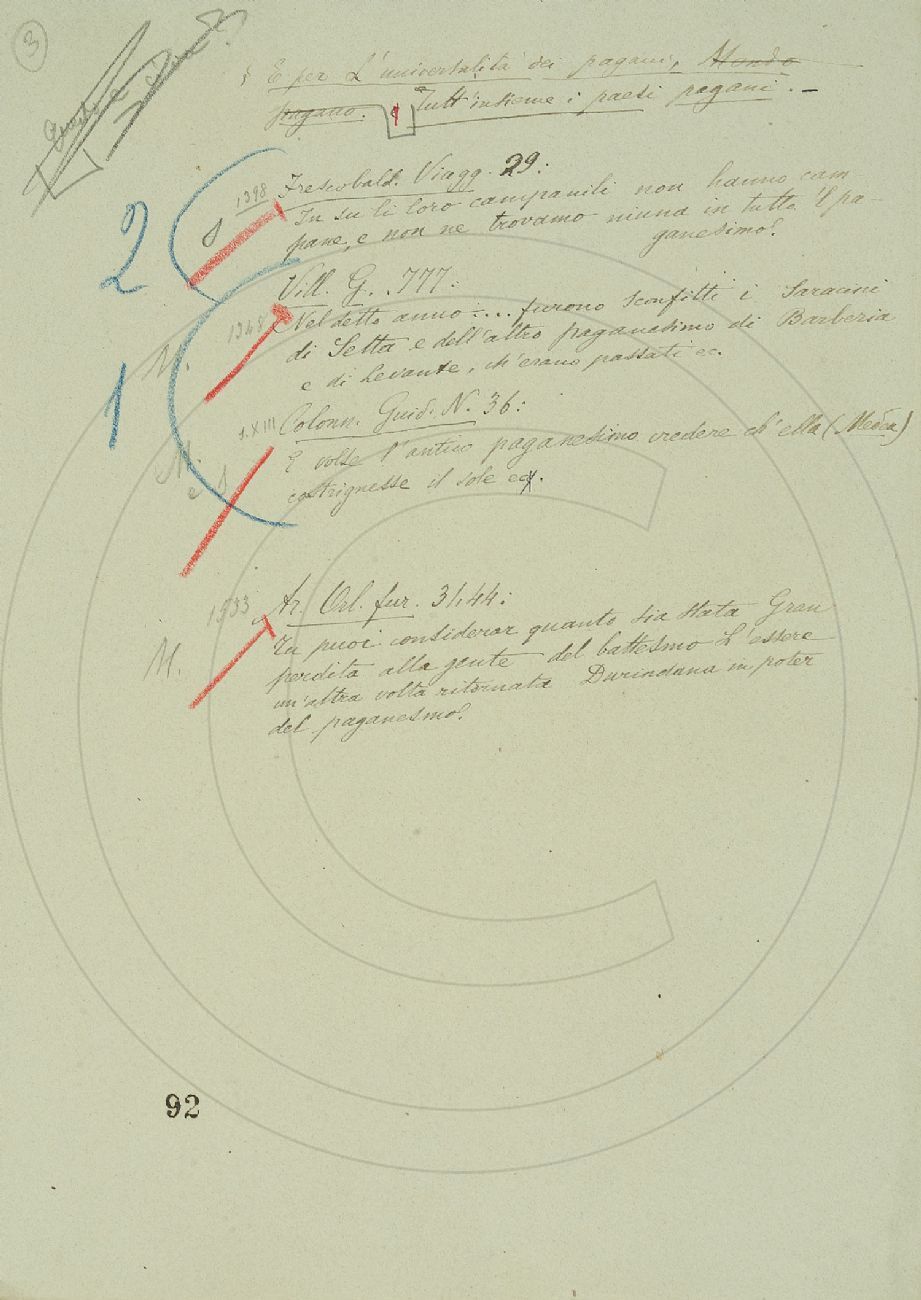 3
§ E per L'universalità dei pagani, Mondo
pagano. Tutt'insieme i paesi pagani. –
1398 Frescobald. Viagg. 29:
2
In su li loro campanili non hanno cam
pane, e non ne trovamo niuna in tutto 'l pa-
ganesimo.
Vill. G. 777:
1348 Nel detto anno .... furono sconfitti i Saracini
M. di Setta e dell'altro paganesimo di Barberia
e di Levante, ch'erano passati ec.
1
s. XIII Colonn. Guid. N. 36:
N. E volse l'antico paganesimo credere ch'ella (Medea)
e s costrignesse il sole ec.
1533 Ar. Orl. fur. 31, 44:
M. Tu puoi considerar quanto sia stata Gran
perdita alla gente del battesmo L'essere
un'altra volta ritornata Durindana in poter
del paganesmo.
92
C